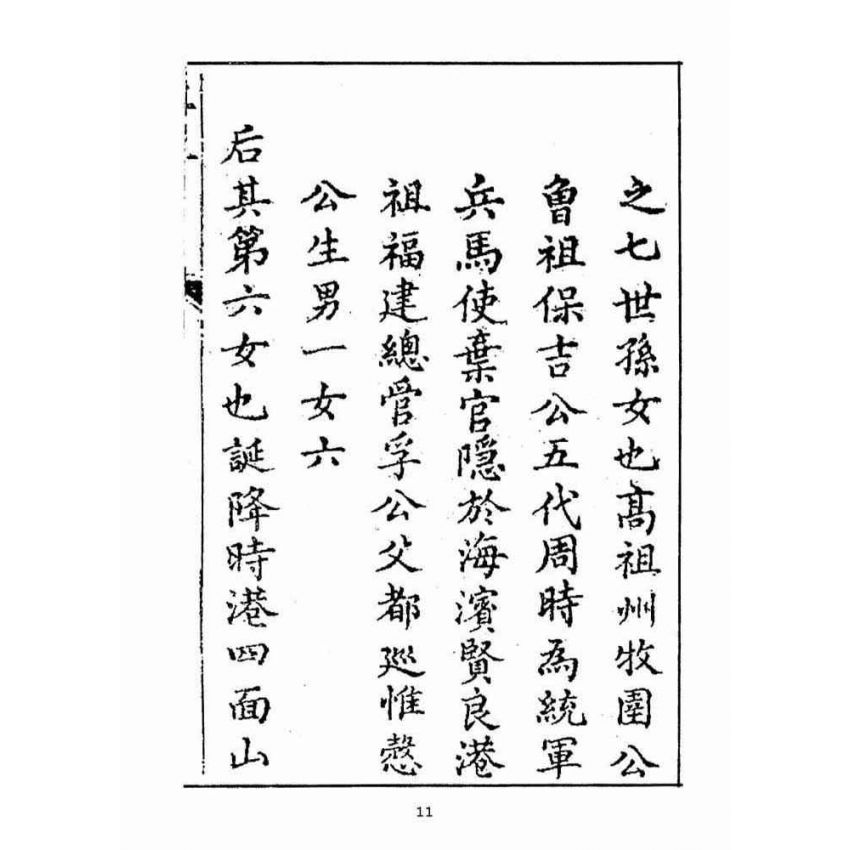 之七世孫女也高祖州牧圉公
曾祖保吉公五代周時為統軍
兵馬使棄官隱於海濱賢良港
祖福建總管孚公父都巡惟愨
公生男一女六
后其第六女也誕降時港四面山
11